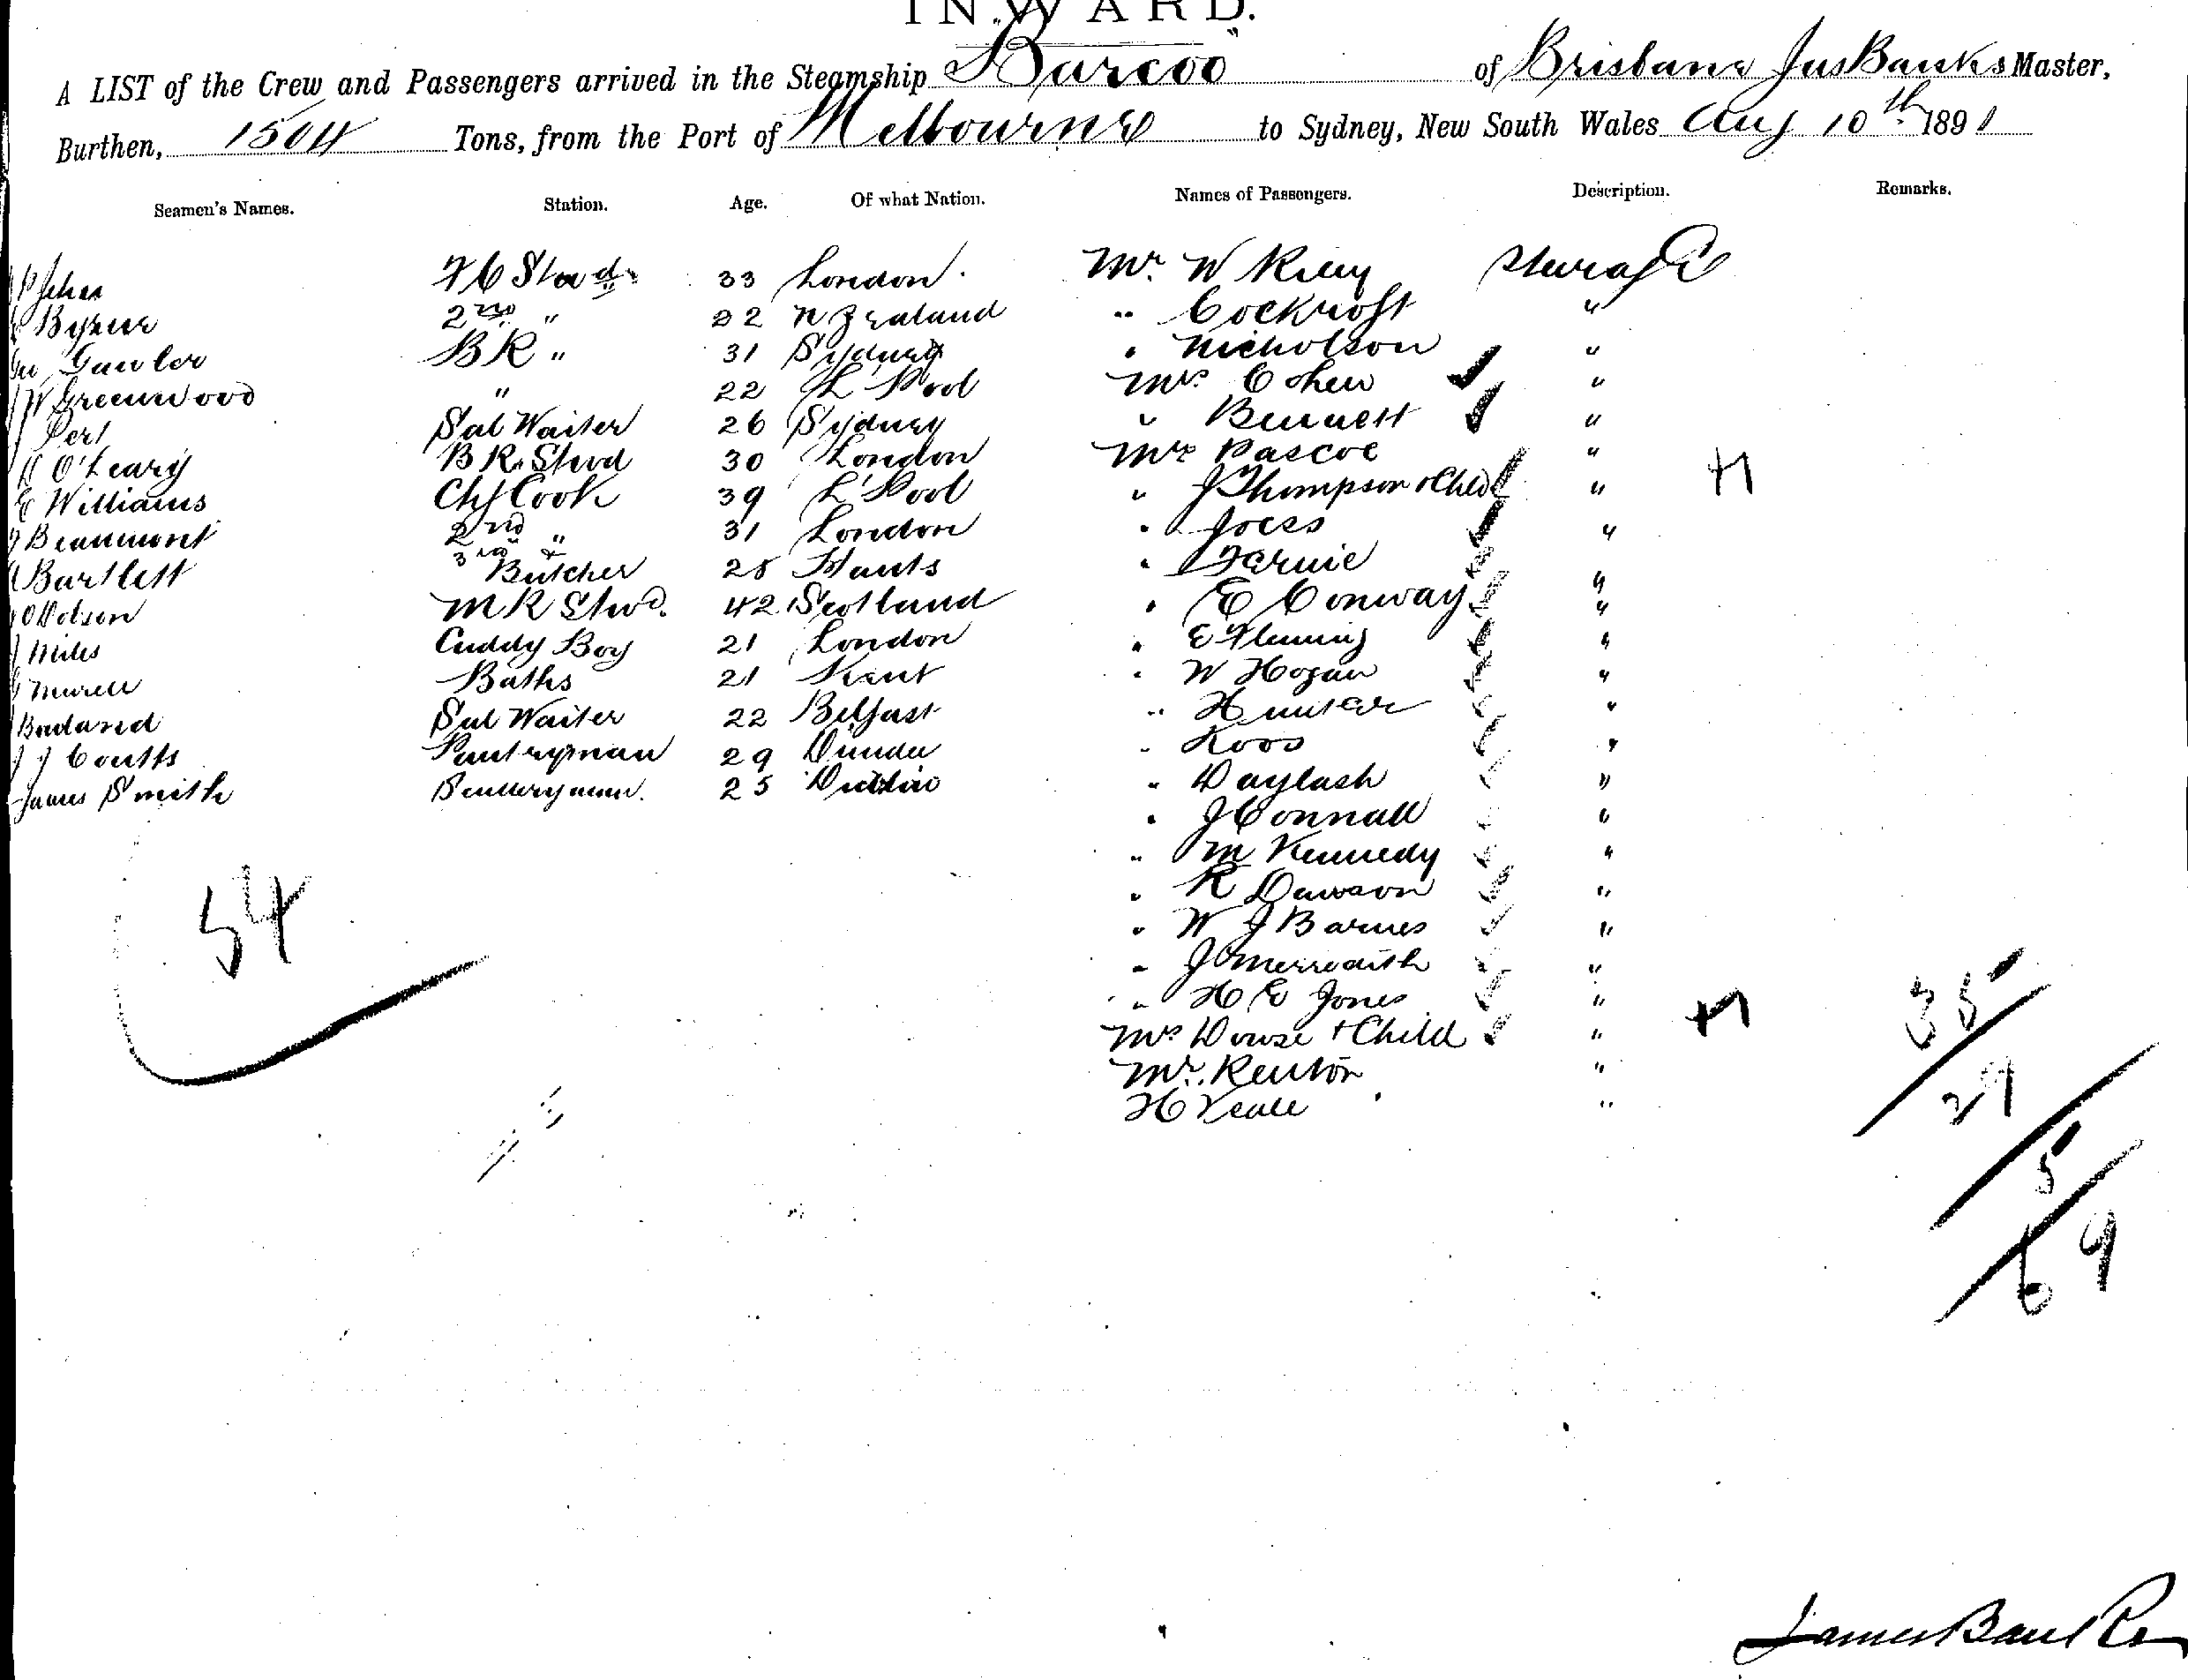 INWARD.
A LIST of the Crew and Passengers arrived in the Steamship "Barcoo" of Brisbane Jas Banks Master,
Burthen, 1504 Tons, from the Port of Melbourne to Sydney, New South Wales Aug 10th 1891
Seamen's Names. Station. Age. Of what Nation. Names of Passengers. Description. Remarks.
33 London Mr. W Riley Steerage
Byrne 2nd " 22 N Zealand " Cockroft "
Gawler BR " 31 Sydney " Nicholson "
W Greenwood " 22 L'Pool Mrs Cohen "
Sal Waiter 26 Sydney " Bennett "
O'Leary BR Stwd 30 London Mr Pascoe "
E Williams Chf Cook 39 L'Pool " J Thompson + Child "
Beaumont 2nd " 31 London " Joess "
Bartlett 3rd " Butcher 25 Hants " Fernie "
Dobson M R Stwd. 42 Scotland " E Conway "
Miles Cuddy Boy 21 London " E Fleming "
Baths 21 Kent " W Hogan "
Sal Waiter 22 Belfast " Hunter "
J Coutts Pantryman 29 Dundee " Koos "
James Smith Sculleryman. 25 Dublin " Daylash "
" J Connall "
" M Kennedy "
54 " R Dawson "
" W J Barnes "
" J Merredith "
" H E Jones " 35
Mrs Dowse + Child "
Mr. Renton " 29
H Veale "
5
69
James Banks